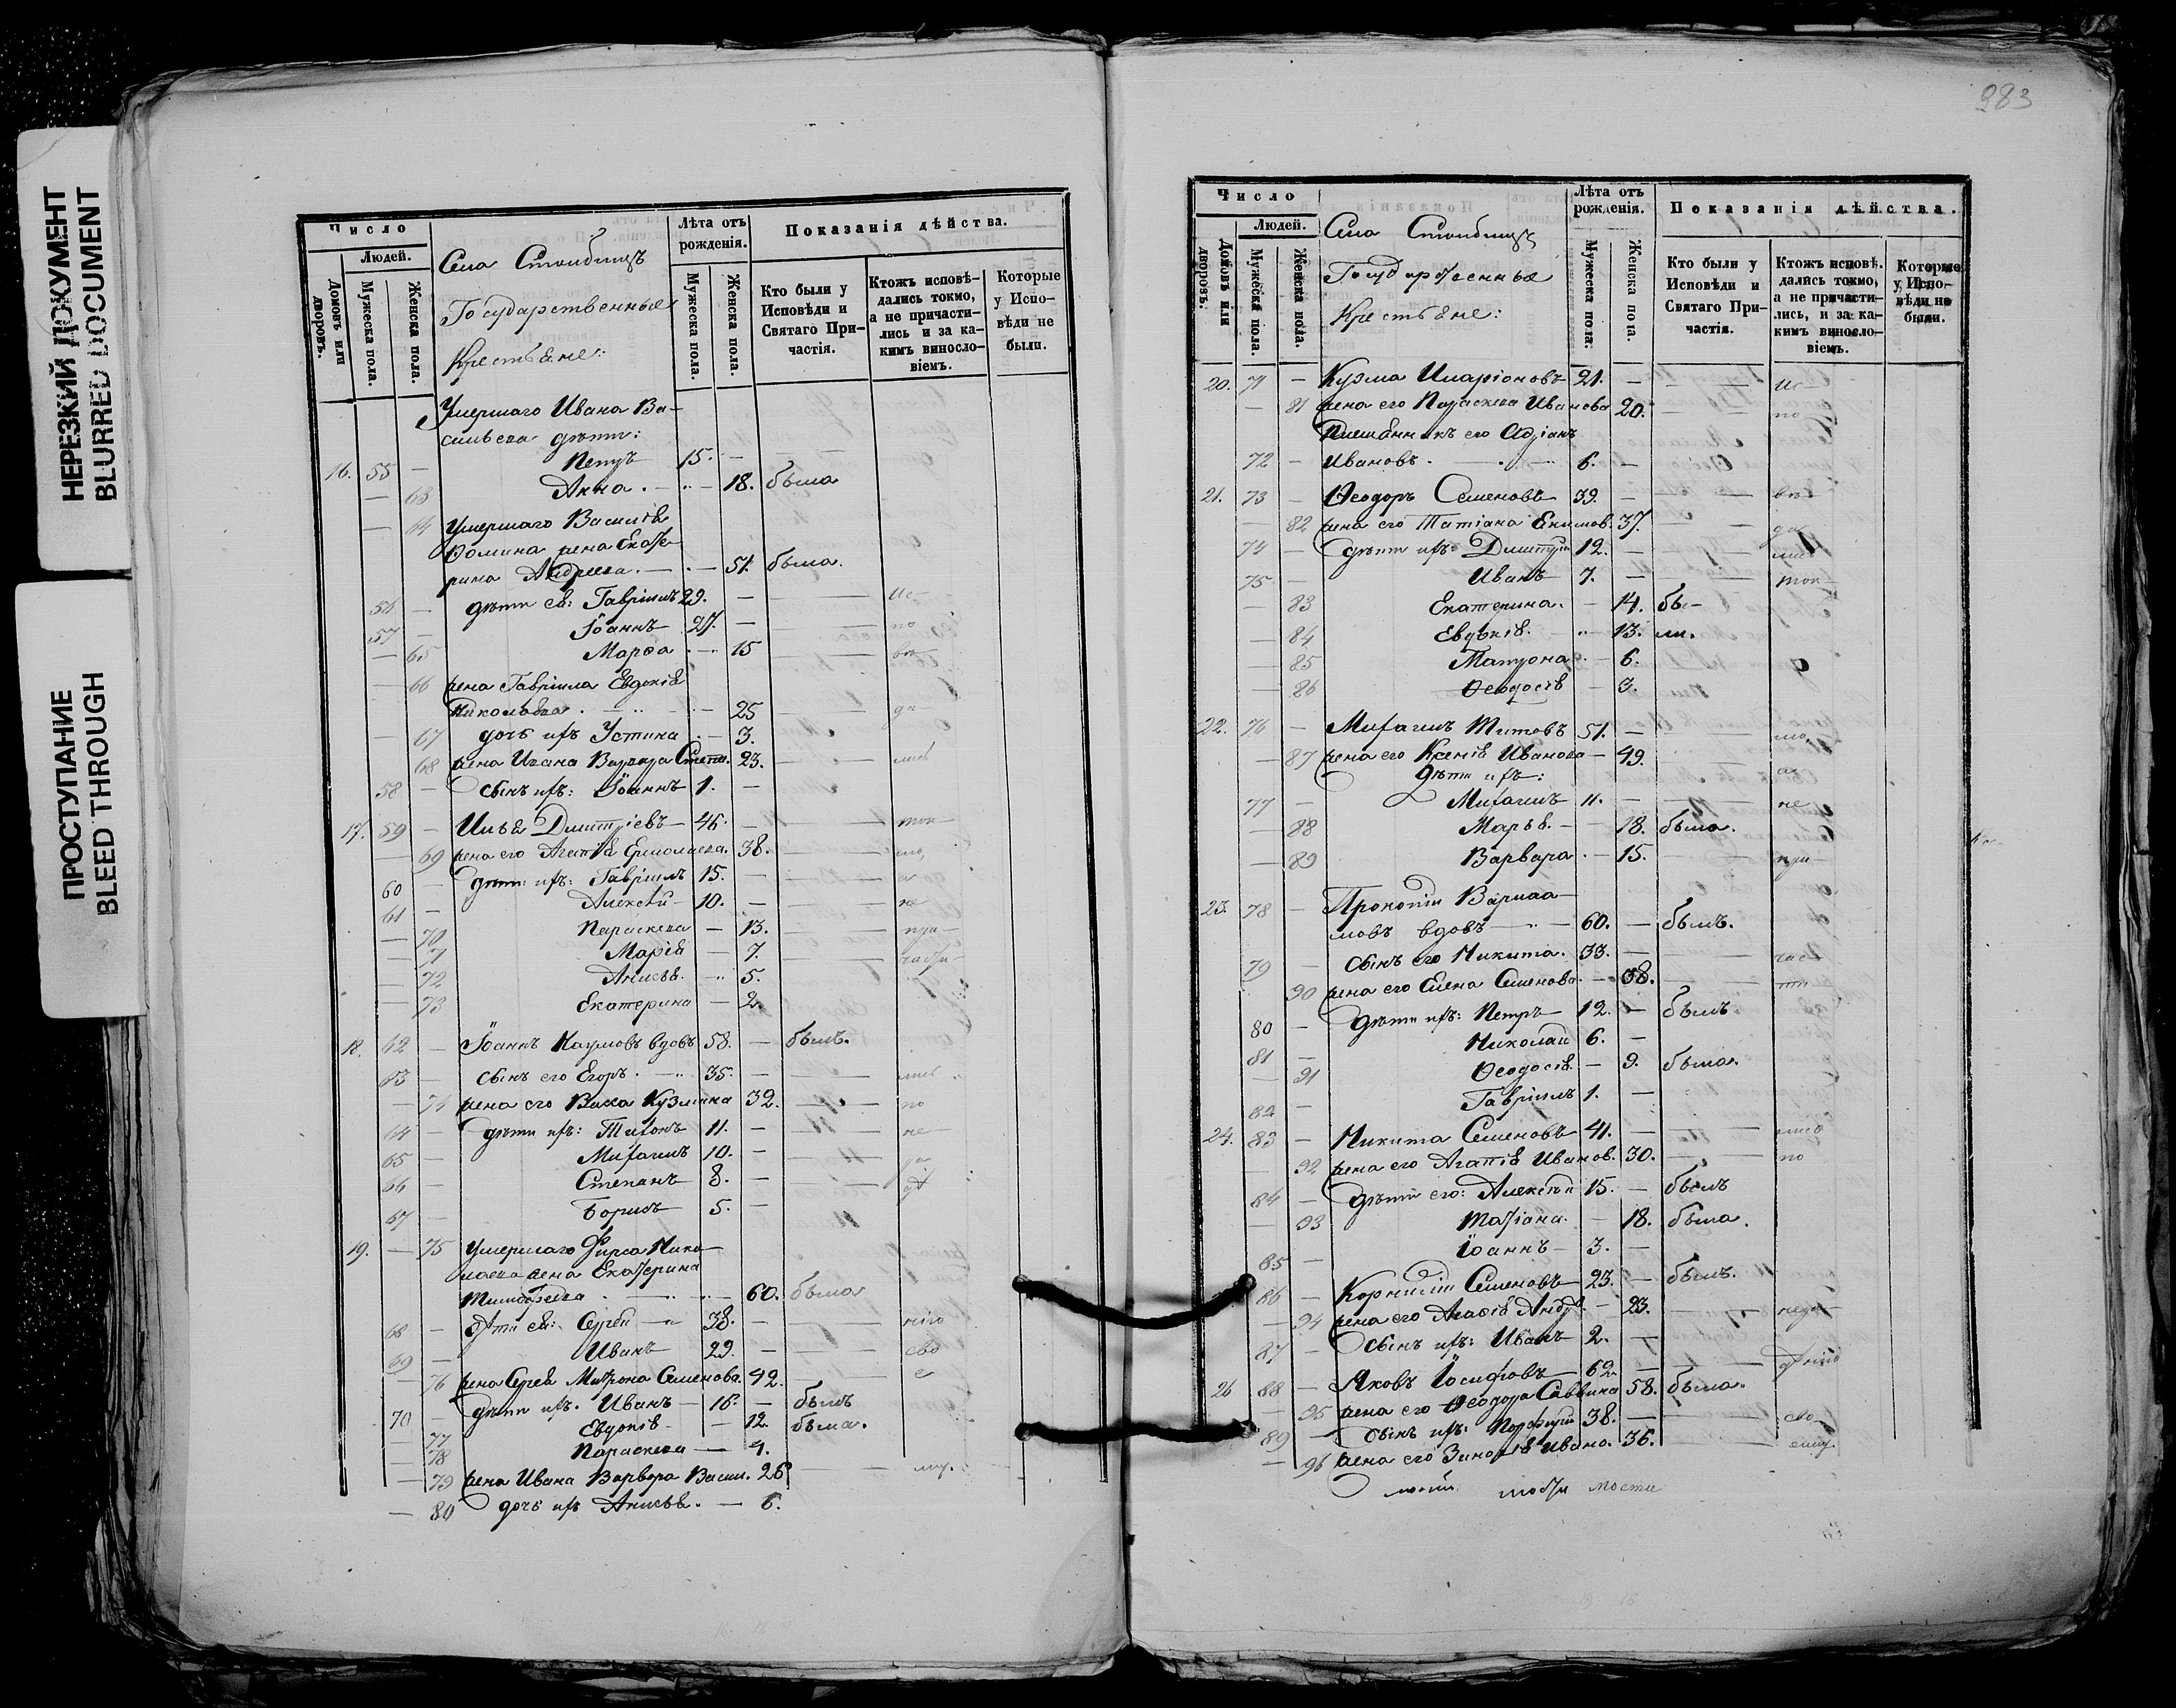 НЕРЕЗКИЙ ДОКУМЕНТ
BLURRED DOCUMENT
ПРОСТУПАНИЕ
BLEED THROUGH
Число
Людей.
Домовъ или дворовъ.
Мужеска пола.
Женска пола.
Села
Государственные
Крестьяне:
Лѣта отъ рожденія.
Мужеска пола.
Женска пола.
Показанія дѣйства.
Кто были у Исповѣди и Святаго Причастія.
Ктожъ исповѣдались токмо, а не причастились и за какимъ винословіемъ.
Которые у Исповѣди не были.
Умершаго Ивана Ва-
сильева дѣти:
16. 55 — Петръ 15. —
— 63 Анна. — 18. была
— 64 Умершаго Василія
Фомина жена Екате-
рина Андреева. — 51. была.
56 — дѣти ея: Гавріилъ 29. — ис-
57 — Іоаннъ 27. — по
— 65 Марѳа — 15 вѣ
— 66 жена Гавріила Евдокія
Николаева. — 25 да-
— 67 дочь ихъ Устина — 3.
68 жена Ивана Варвара Степа. 23. лись
58 — сынъ ихъ: Іоаннъ 1. —
17. 59 — Илья Димитріевъ — 46. —ток-
— 69 жена его Агапія Ермолаева. 38. мо,
60 — дѣти ихъ: Гавріилъ 15. — а
61 — Алексѣй — 10. — не
— 70 Параскева — 13. при-
— 71 Марія — 7. части-
— 72 Анисья. 5.
— 73 Екатерина — 2.
18. 62 — Іоаннъ Наумовъ вдовъ 58. — былъ.
63 — сынъ его Егоръ. 35. — лись
— 74 жена его Васса Кузмина 32. по
64 — дѣти ихъ: Тихонъ 11. — не
65 — Михаилъ 10. —
66 — Степанъ 8. —
67 — Борисъ 5. —
19. — 75 Умершаго Фирса Нико-
лаева жена Екатерина
Тимофеева 60. была
68 — дѣти ея: Сергѣй 38. —
69 — Иванъ 29. — сво
— 76 жена Сергѣя Матрона Семенова. 42. е
70 — дѣти ихъ. Иванъ — 16. — былъ
— 77 Евдокія — 12. была.
— 78 Параскева — 7.
— 79 жена Ивана Варвара Васил. 26.
— 80 дочь ихъ Анисья. — 6.
983
Число
Людей.
Домовъ или дворовъ.
Мужеска пола.
Женска пола.
Села
Государственные
Крестьяне:
Лѣта отъ рожденія.
Мужеска пола.
Женска пола.
Показанія дѣйства.
Кто были у Исповѣди и Святаго Причастія.
Ктожъ исповѣдались токмо, а не причастились, и за какимъ винословіемъ.
Которые у Исповѣди не были.
20. 71 — Кузма Иларіоновъ 21. — ис-
— 81 жена его Параскева Иванова 20. по
Племянникъ его Адріанъ
72 — Ивановъ. 6. —
21. 73 — Ѳеодоръ Семеновъ 39. — вѣ
— 82 жена его Татіана Екимов. 37. да
74 — дѣти ихъ: Димитрій 12. — лись
75 — Иванъ 7. — ток-
— 83 Екатерина. — 14. бы-
— 84 Евдокія. 13. ли.
— 85 Матрона. — 6.
— 86 Ѳеодосія — 3.
22. 76 — Михаилъ Титовъ 51. — мо,
— 87 жена его Ксенія Иванова — 49. а
дѣти ихъ:
77 — Михаилъ 11. — не
— 88 Марья. — 18. была.
— 89 Варвара. — 15. при-
23. 78 — Прокопій Варлаа-
мовъ вдовъ 60. — былъ.
79 — сынъ его Никита. 33. — час-
90 жена его Елена Семенова. — 38. ти
80 — дѣти ихъ: Петръ 12. — былъ
81 — Николай 6. —
— 91 Ѳеодосія. — 9. была.
82 — Гавріилъ 1. —
24. 83 — Никита Семеновъ 41. — лись
— 92 жена его Агапія Иванов. 30. по
84 — дѣти его: Алексѣй 15. — былъ
— 93 Татіана. — 18. была.
85 — Іоаннъ — 3. —
86 — Корнилій Семеновъ 23. — былъ.
— 94 жена его Агафія Андр. — 23.
87 — сынъ ихъ: Иванъ 2. —
26 88 — Яковъ Іосифовъ 62. —
— 95 жена его Ѳеодора Саввина 58. была.
89 — сынъ ихъ: Порфирій 38. — сво
— 96 жена его Зиновія Ивано. 36. ему.